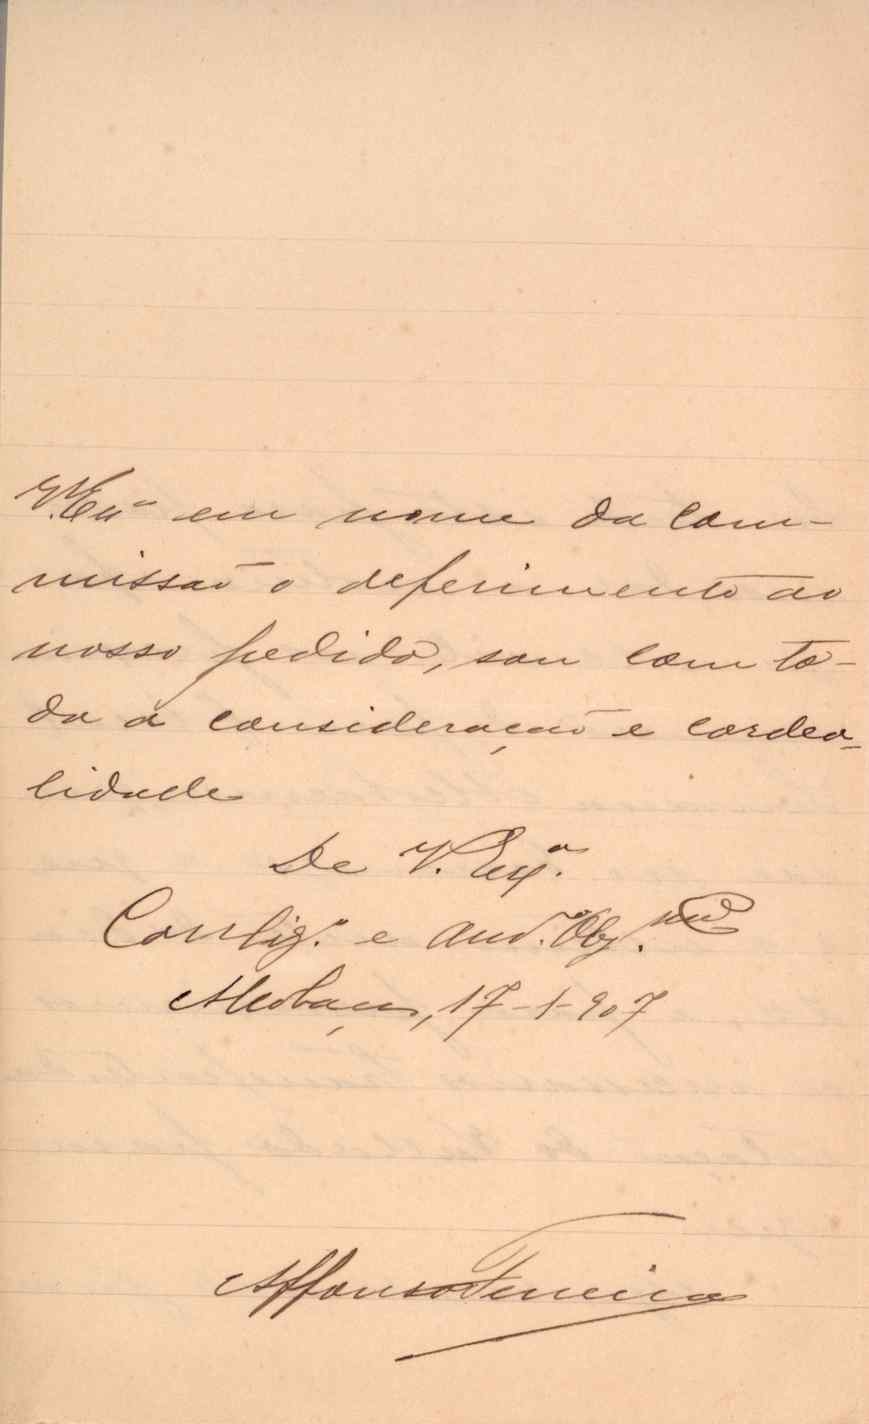 V. Exª em nome da com-
missão o deferimento ao
nosso pedido, sou com to-
da a consideração e cordea-
lidade
De V. Exª.
Corrlig.º e am.º Obg.mo
Alcobaça, 17-1-907
Affonso Ferreira